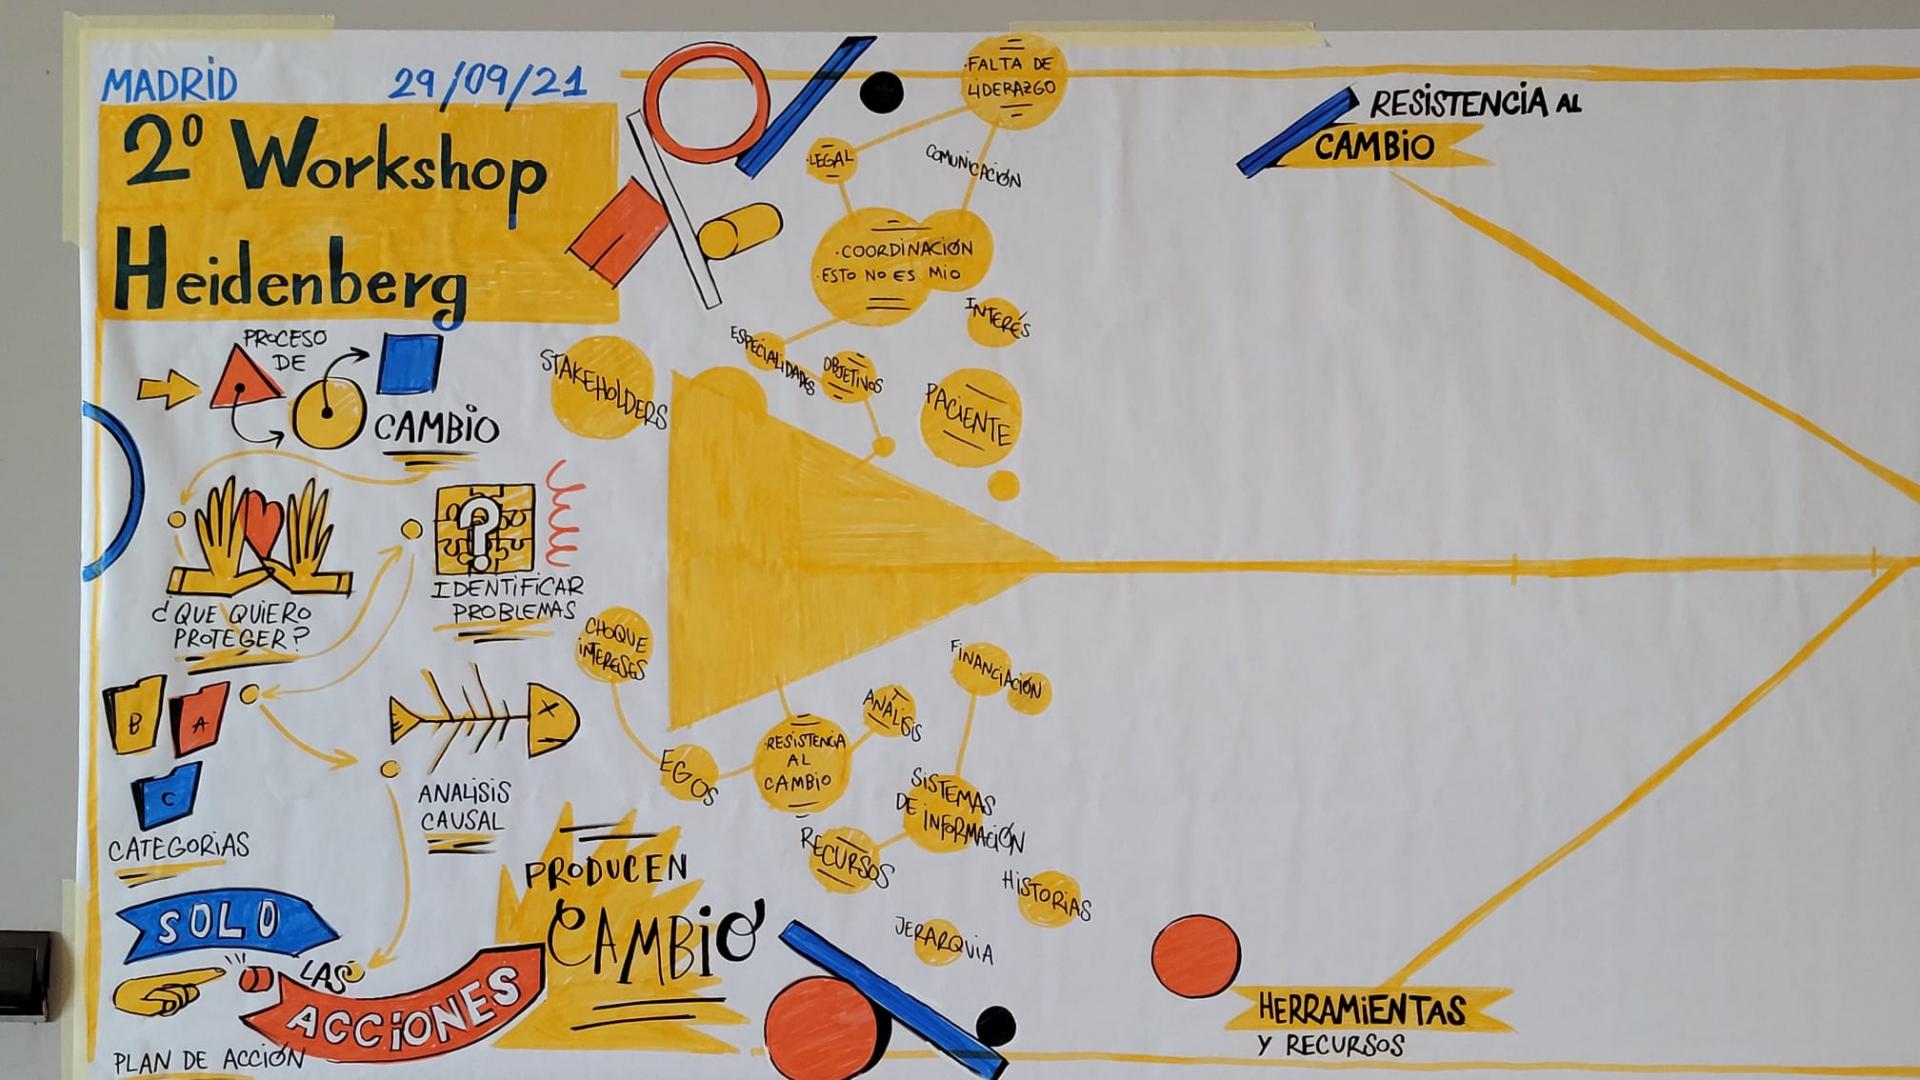 MADRID
29/09/21
2º Workshop
Heidenberg
PROCESO
DE
CAMBIO
¿QUE QUIERO
PROTEGER?
?
IDENTIFICAR
PROBLEMAS
B
A
C
CATEGORIAS
ANALISIS
CAUSAL
SOLO
LAS
ACCIONES
PRODUCEN
CAMBIO
PLAN DE ACCIÓN
·FALTA DE
LIDERAZGO
·LEGAL
COMUNICACIÓN
·COORDINACIÓN
·ESTO NO ES MIO
INTERÉS
ESPECIALIDADES
OBJETIVOS
STAKEHOLDERS
PACIENTE
CHOQUE
INTERESES
EGOS
·RESISTENCIA
AL
CAMBIO
ANÁLISIS
FINANCIACIÓN
SISTEMAS
DE INFORMACIÓN
RECURSOS
HISTORIAS
JERARQUIA
RESISTENCIA AL
CAMBIO
HERRAMIENTAS
Y RECURSOS